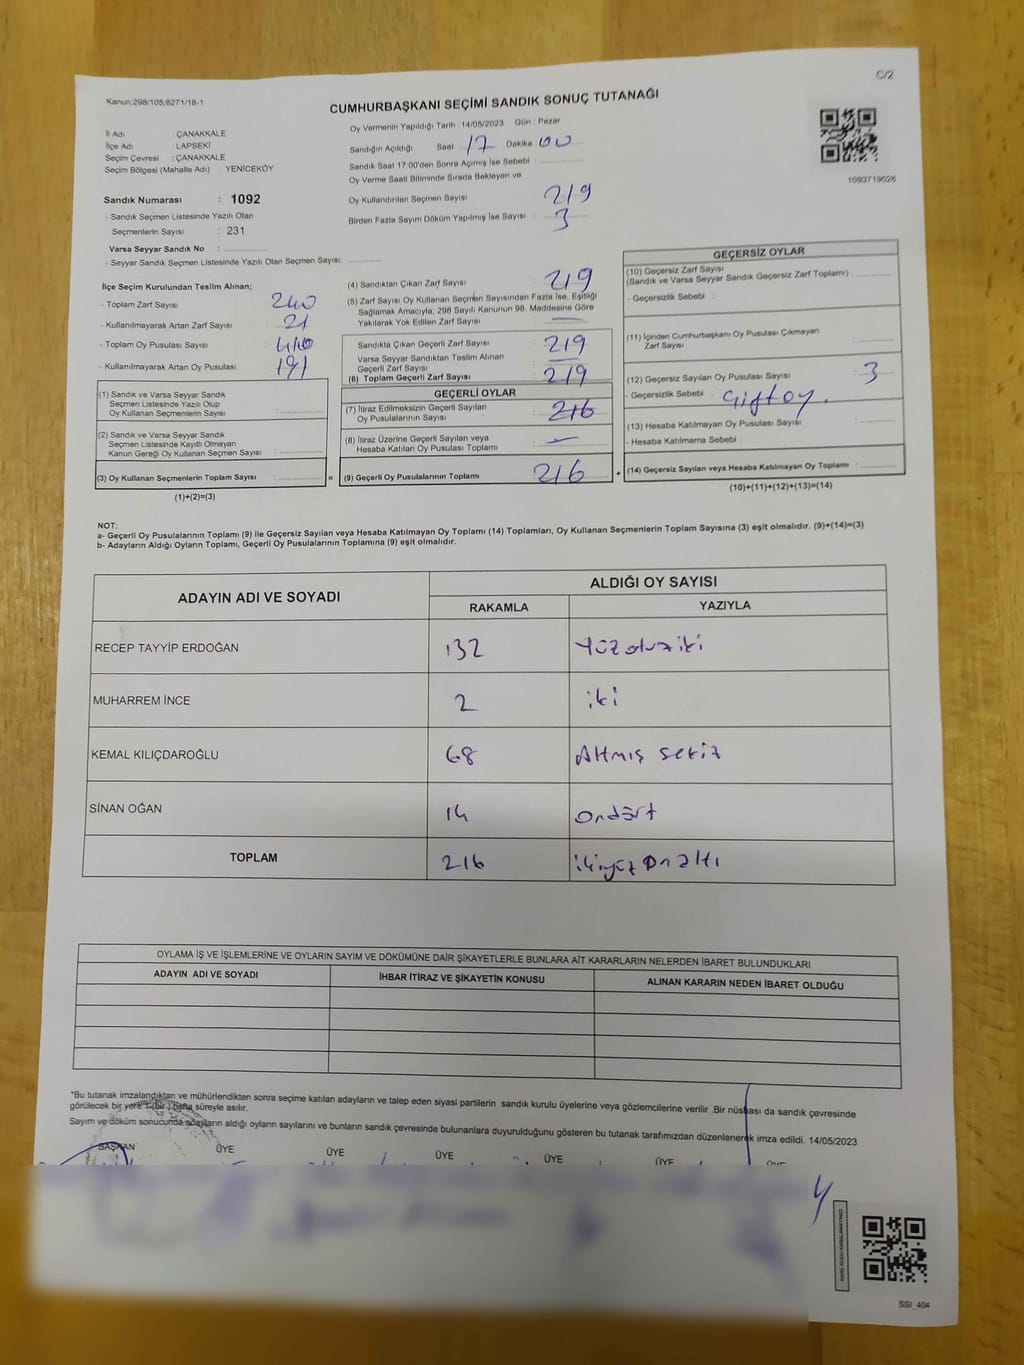 C/2
Kanun;298/105;6271/18-1
CUMHURBAŞKANI SEÇİMİ SANDIK SONUÇ TUTANAĞI
İl Adı : ÇANAKKALE
İlçe Adı : LAPSEKİ
Seçim Çevresi : ÇANAKKALE
Seçim Bölgesi (Mahalle Adı) : YENİCEKÖY
Oy Vermenin Yapıldığı Tarih : 14/05/2023 Gün : Pazar
Sandığın Açıldığı Saat : 17 Dakika 00
Sandık Saat 17:00'den Sonra Açımış İse Sebebi :
Oy Verme Saati Bitiminde Sırada Bekleyen ve
Oy Kullandırılan Seçmen Sayısı : 219
Birden Fazla Sayım Döküm Yapılmış İse Sayısı : 3
1093719028
Sandık Numarası : 1092
- Sandık Seçmen Listesinde Yazılı Olan
Seçmenlerin Sayısı : 231
Varsa Seyyar Sandık No :
- Seyyar Sandık Seçmen Listesinde Yazılı Olan Seçmen Sayısı:
İlçe Seçim Kurulundan Teslim Alınan;
- Toplam Zarf Sayısı : 240
- Kullanılmayarak Artan Zarf Sayısı : 21
- Toplam Oy Pusulası Sayısı : 410
- Kullanılmayarak Artan Oy Pusulası : 191
(1) Sandık ve Varsa Seyyar Sandık
Seçmen Listesinde Yazılı Olup
Oy Kullanan Seçmenlerin Sayısı :
(2) Sandık ve Varsa Seyyar Sandık
Seçmen Listesinde Kayıtlı Olmayan
Kanun Gereği Oy Kullanan Seçmen Sayısı :
(3) Oy Kullanan Seçmenlerin Toplam Sayısı : =
(1)+(2)=(3)
(4) Sandıktan Çıkan Zarf Sayısı : 219
(5) Zarf Sayısı Oy Kullanan Seçmen Sayısından Fazla İse, Eşitliği
Sağlamak Amacıyla, 298 Sayılı Kanunun 98. Maddesine Göre
Yakılarak Yok Edilen Zarf Sayısı : —
Sandıkta Çıkan Geçerli Zarf Sayısı : 219
Varsa Seyyar Sandıktan Teslim Alınan
Geçerli Zarf Sayısı : —
(6) Toplam Geçerli Zarf Sayısı : 219
GEÇERLİ OYLAR
(7) İtiraz Edilmeksizin Geçerli Sayılan
Oy Pusulalarının Sayısı : 216
(8) İtiraz Üzerine Geçerli Sayılan veya
Hesaba Katılan Oy Pusulası Toplamı : —
(9) Geçerli Oy Pusulalarının Toplamı : 216 +
GEÇERSİZ OYLAR
(10) Geçersiz Zarf Sayısı
(Sandık ve Varsa Seyyar Sandık Geçersiz Zarf Toplamı) :
- Geçersizlik Sebebi :
(11) İçinden Cumhurbaşkanı Oy Pusulası Çıkmayan
Zarf Sayısı :
(12) Geçersiz Sayılan Oy Pusulası Sayısı : 3
- Geçersizlik Sebebi : Çift oy.
(13) Hesaba Katılmayan Oy Pusulası Sayısı :
- Hesaba Katılmama Sebebi :
(14) Geçersiz Sayılan veya Hesaba Katılmayan Oy Toplamı :
(10)+(11)+(12)+(13)=(14)
NOT:
a- Geçerli Oy Pusulalarının Toplamı (9) ile Geçersiz Sayılan veya Hesaba Katılmayan Oy Toplamı (14) Toplamları, Oy Kullanan Seçmenlerin Toplam Sayısına (3) eşit olmalıdır. (9)+(14)=(3)
b- Adayların Aldığı Oyların Toplamı, Geçerli Oy Pusulalarının Toplamına (9) eşit olmalıdır.
ADAYIN ADI VE SOYADI ALDIĞI OY SAYISI
RAKAMLA YAZIYLA
RECEP TAYYİP ERDOĞAN 132 Yüzotuziki
MUHARREM İNCE 2 iki
KEMAL KILIÇDAROĞLU 68 Altmış sekiz
SİNAN OĞAN 14 ondört
TOPLAM 216 ikiyüz onaltı
OYLAMA İŞ VE İŞLEMLERİNE VE OYLARIN SAYIM VE DÖKÜMÜNE DAİR ŞİKAYETLERLE BUNLARA AİT KARARLARIN NELERDEN İBARET BULUNDUKLARI
ADAYIN ADI VE SOYADI İHBAR İTİRAZ VE ŞİKAYETİN KONUSU ALINAN KARARIN NEDEN İBARET OLDUĞU
*Bu tutanak imzalandıktan ve mühürlendikten sonra seçime katılan adayların ve talep eden siyasi partilerin sandık kurulu üyelerine veya gözlemcilerine verilir .Bir nüshası da sandık çevresinde
görülecek bir yere 1 (bir ) hafta süreyle asılır.
Sayım ve döküm sonucunda adayların aldığı oyların sayılarını ve bunların sandık çevresinde bulunanlara duyurulduğunu gösteren bu tutanak tarafımızdan düzenlenerek imza edildi. 14/05/2023
BAŞKAN ÜYE ÜYE ÜYE ÜYE ÜYE ÜYE
SSI_404